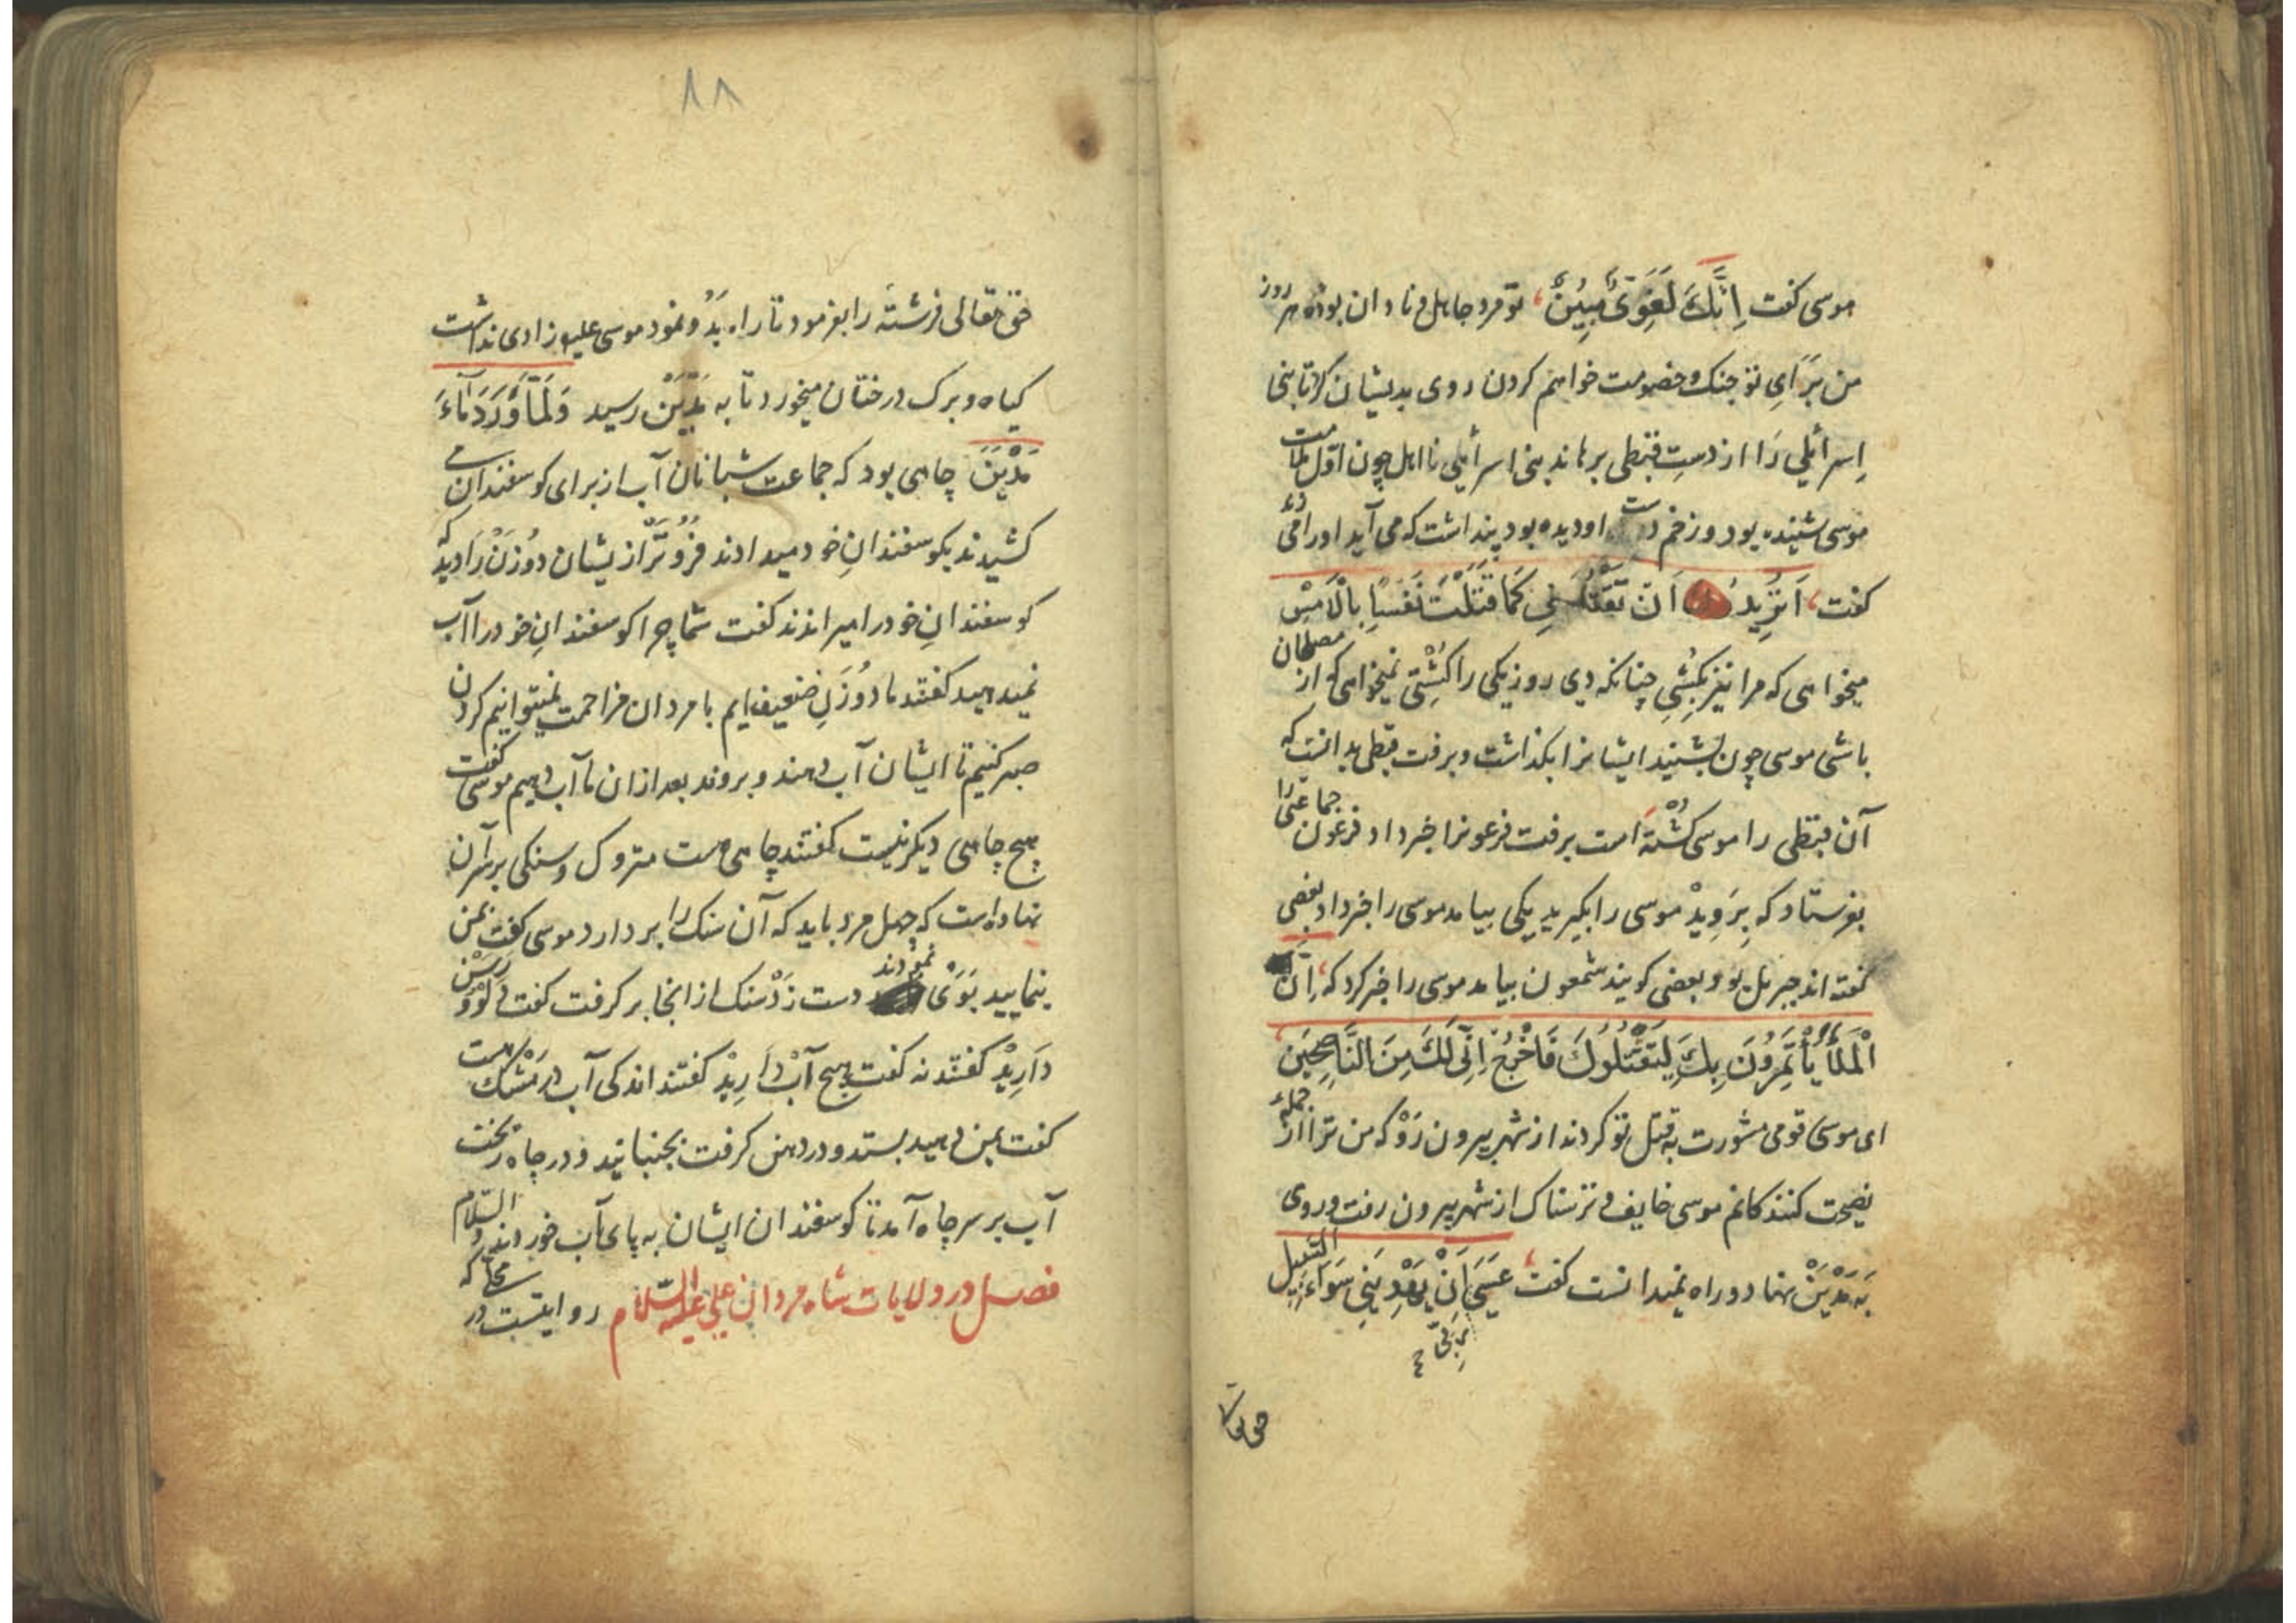 موسی کفت اِنَّكَ لَغَوِیٌّ مُبِینٌ، تو مرد جاهل و نادان بوده هر روز
من بَرَایِ تو جنک و خصومت خواهم کردن روی بدیشان کرد تا بنی
اِسرائیلي رَا از دستِ قبطی برهاند بنی اسرائیلي نااهل چون اوّل ملامت
موسی شنیده بود و زخم دست او دیده بود پنداشت که می آید او را
کفت، اَتُرِیدُ اَنْ تَقْتُلَنِي کَمَا قَتَلْتَ نَفْسًا بِالْاَمْسِ
میخواهی که مرا نیز بکُشیِ چنانکه دی روز یکی را کُشْتِی نمیخواهی که از مصلحان
باشی موسی چون بشنید ایشانرا بکذاشت و برفت قبطی بدانست که
آن قبطی را موسی کُشْتَه است برفت فرعونرا خبر داد فرعون جماعتی را
بفرستاد که بِرَوِیدْ موسی را بکیرید یکی بیامد موسی را خبر داد بعضِی
کفته اند جبرئل بو و بعضی کویند شمعون بیامد موسی را خبر کرد که، اِنَّ
الْمَلَأَ یَأْتَمِرُونَ بِكَ لِیَقْتُلُوكَ فَاخْرُجْ اِنِّی لَكَ مِنَ النَّاصِحِینَ
ای موسی قومی مشورت به قتل تو کردند از شهر بیرون رَوْ که من ترا از جملهٔ
نصیحت کنندکانم موسی خایف و ترسناک از شهر بیرون رفت و روی
بَه مَدْیَنْ نهاد و راه نمیدانست کفت، عَسَی اَنْ یَهْدِیَنِي سَوَاءَ السَّبِیل
رَبّی
حق تعا
٨٨
حق تعالی فرشتَه را بفرمود تا راه بَدُو نمود موسی علیه زادی نداشت
کیاه و برک درختان میخورد تا به مَدْیَنْ رسید وَلَمَّا وَرَدَ مَاءَ
مَدْیَنَ چاهی بود که جماعت شبانان آب از برای کوسفندان می
کشیدند بکوسفندانِ خود میدادند فُرُوتَرْ از یشان دُو زَنْ رَا دید که
کوسفندانِ خود را میراندند کفت شما چرا کوسفندانِ خود را آب
نمیدهید کفتند ما دو زَنِ ضعیف ایم با مردان مزاحمت نمیتوانیم کردن
صبر کنیم تا ایشان آب دهند و بروند بعد از ان ما آب دهیم موسی کفت
هیچ چاهی دیکر نیست کفتند چاهی هست متروک و سنکی بر سر آن
نهاده است که چهل مرد باید که آن سنک را بردارد موسی کفت بمن
بنمایید بَوَی نمودند دست زَدْ سنک از انجا بر کرفت کفت دلو و رَسَنْ
دَارِیدْ کفتند نه کفت هیچ آبْ دَارِیدْ کفتند اندکی آب در مَشْک هست
کفت بمن دهید بستد و در دهن کرفت بجنبانید و در چاه ریخت
آب بر سر چاه آمد تا کوسفندان ایشان به پای آب خوردند و السّلام
فصل در ولایات شاه مردان علي علیه السّلام روایتست در که